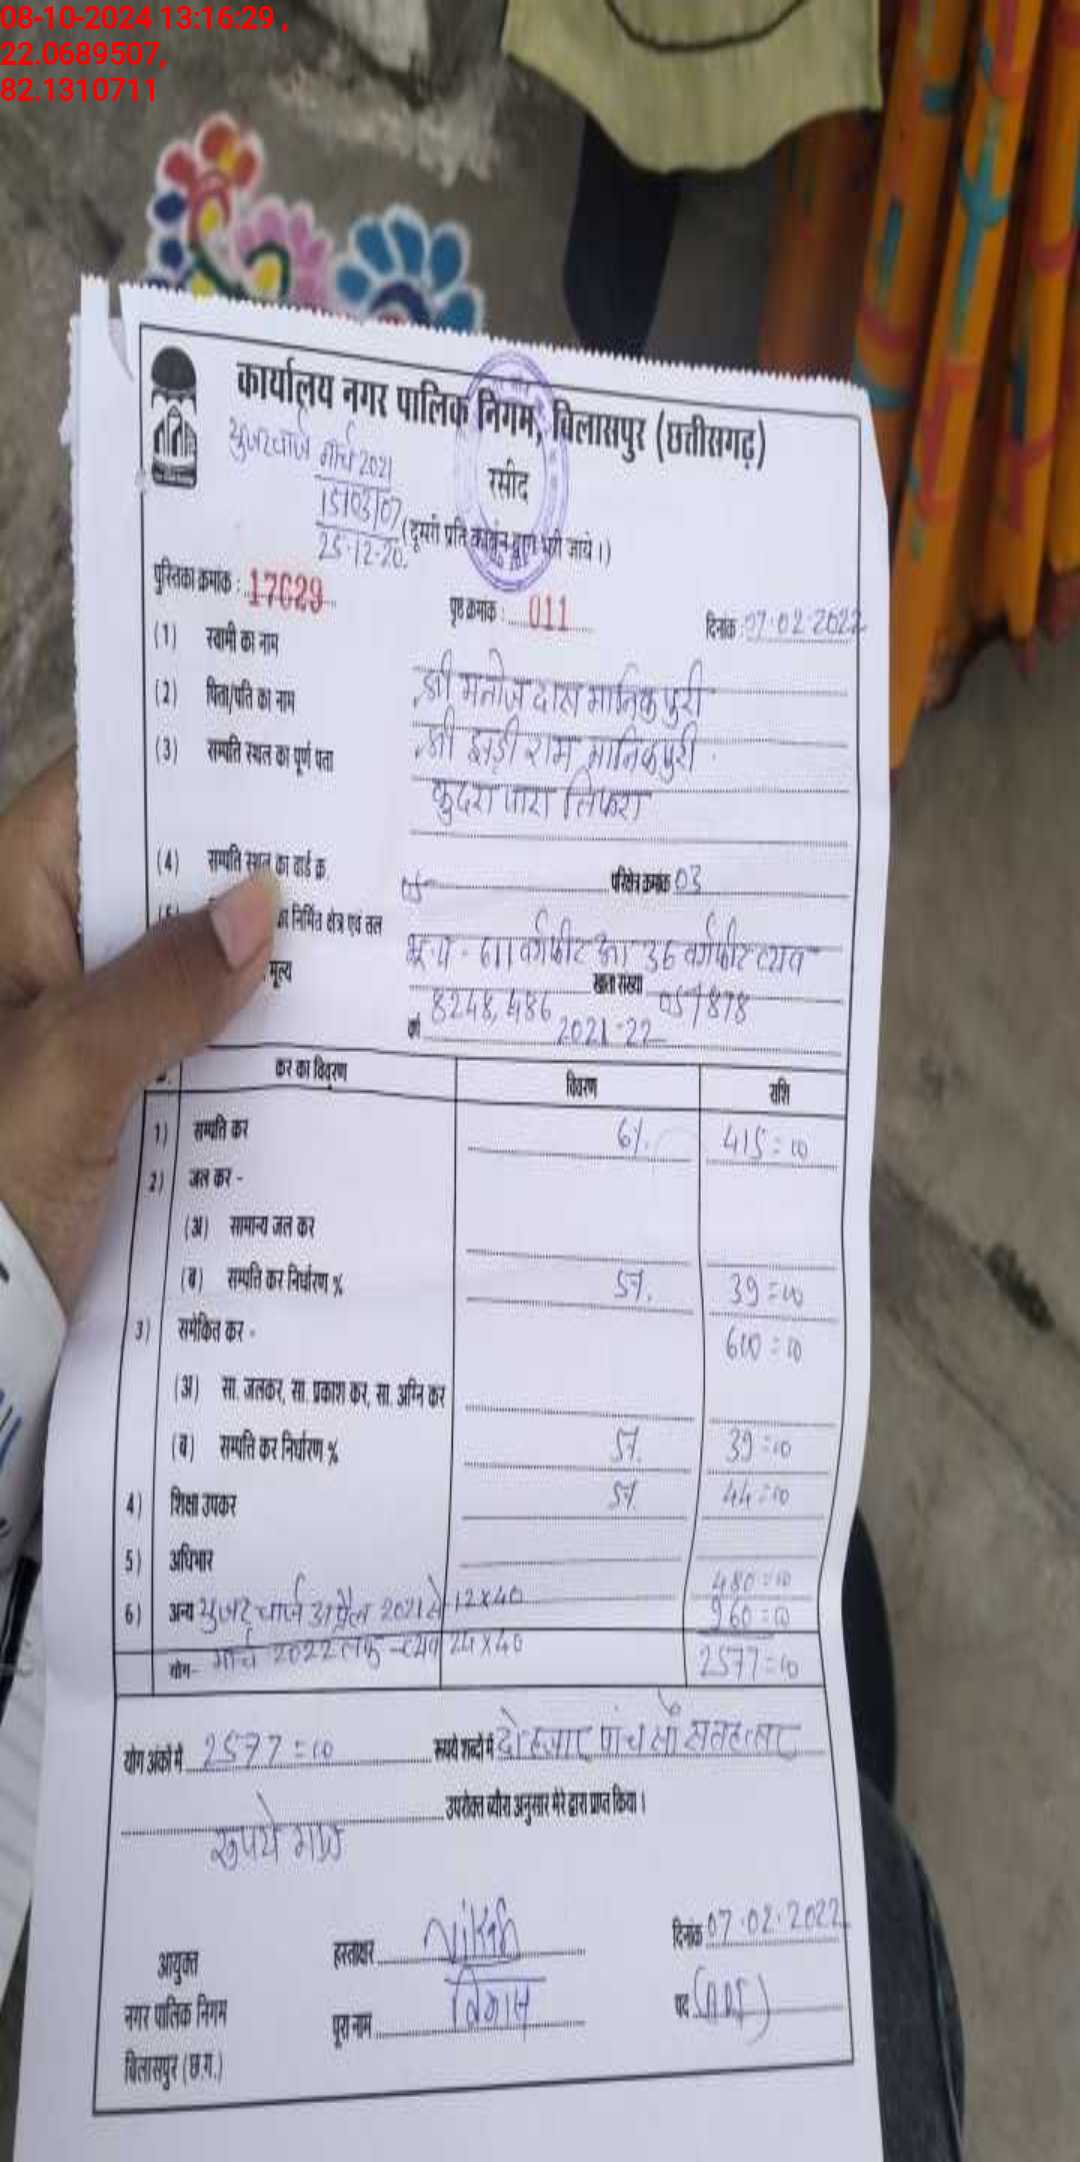 08-10-2024 13:16:29 ,
22.0689507,
82.1310711
कार्यालय नगर पालिक निगम, बिलासपुर (छत्तीसगढ़)
युजर चार्ज मार्च 2021
रसीद
15103107
25-12-20.
(दूसरी प्रति कार्बन द्वारा भरी जाये।)
पुस्तिका क्रमाक : 17629
पृष्ठ क्रमाक : 011
दिनांक 07-02-2022
(1) स्वामी का नाम श्री मनोज दास मानिकपुरी
(2) पिता/पति का नाम श्री झड़ी राम मानिकपुरी
(3) सम्पति स्थल का पूर्ण पता कुदरा पारा तिफरा
(4) सम्पति स्थल का वार्ड क्र. 05 परिक्षेत्र क्रमांक 03
निर्मित क्षेत्र एवं तल 611 वर्गफीट 36 वर्गफीट
मूल्य 8248,486 खाता संख्या 057878
वर्ष 2021-22
कर का विवरण विवरण राशि
1) सम्पति कर 6%. 415=00
2) जल कर -
(अ) सामान्य जल कर
(ब) सम्पति कर निर्धारण % 5%. 39=00
3) समेकित कर - 600=00
(अ) सा. जलकर, सा. प्रकाश कर, सा. अग्नि कर
(ब) सम्पति कर निर्धारण % 5%. 39=00
4) शिक्षा उपकर 5%. 44=00
5) अधिभार
480=00
6) अन्य युजर चार्ज अप्रैल 2021 से 12x40 960=00
योग- मार्च 2022 तक 24x40 2577=00
योग अंकों में 2577=00 रूपये शब्दों में दो हजार पांच सौ सतहत्तर
उपरोक्त ब्यौरा अनुसार मेरे द्वारा प्राप्त किया।
रूपये मात्र
आयुक्त हस्ताक्षर दिनांक 07.02.2022
नगर पालिक निगम पूरा नाम विकास पद
बिलासपुर (छ.ग.)